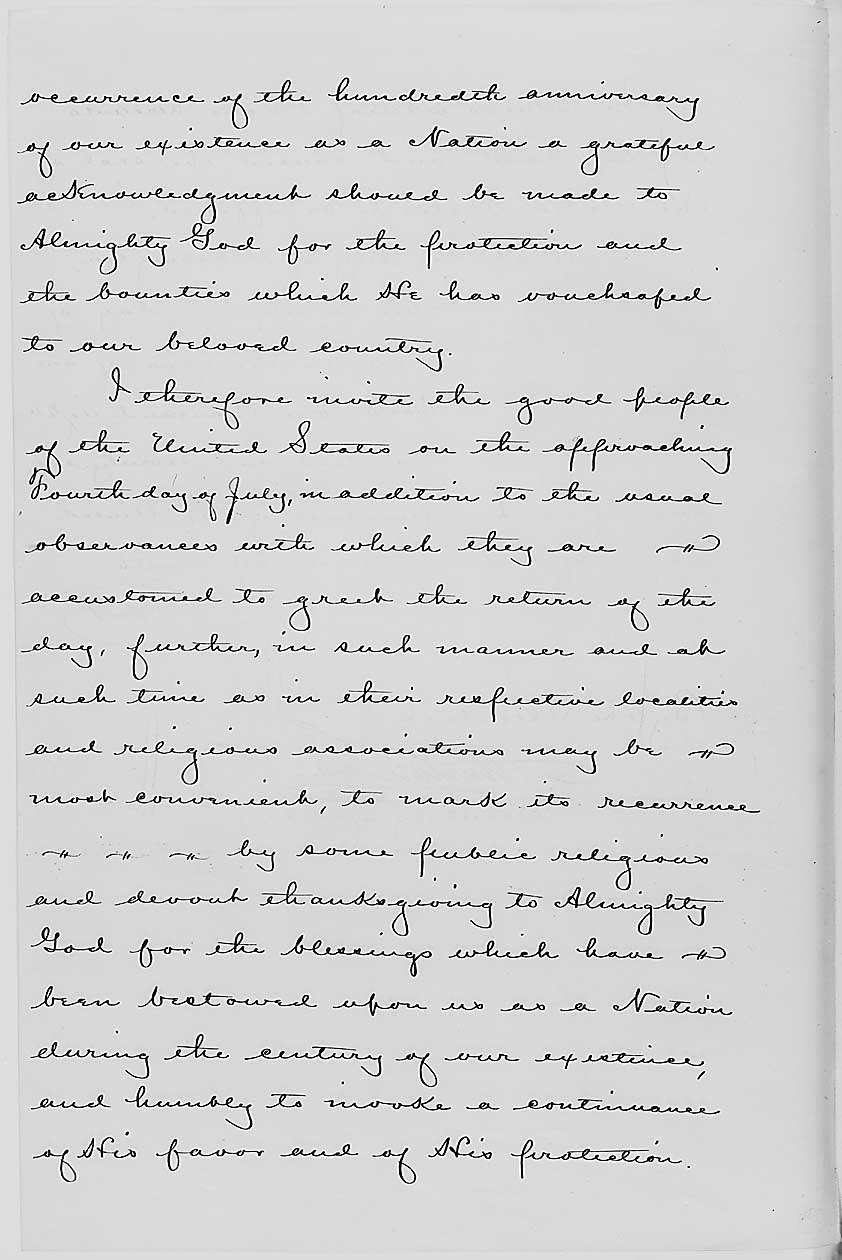 occurrence of the hundredth anniversary
of our existence as a Nation a grateful
acKnowledgment should be made to
Almighty God for the protection and
the bounties which He has vouchsafed
to our beloved country.
I therefore invite the good people
of the United States on the approaching
Fourth day of July, in addition to the usual
observances with which they are
accustomed to greet the return of the
day, further, in such manner and at
such time as in their respective localities
and religious associations may be
most convenient, to mark its recurrence
by some public religious
and devout thanksgiving to Almighty
God for the blessings which have
been bestowed upon us as a Nation
during the century of our existence,
and humbly to invoke a continuance
of His favor and of His protection.